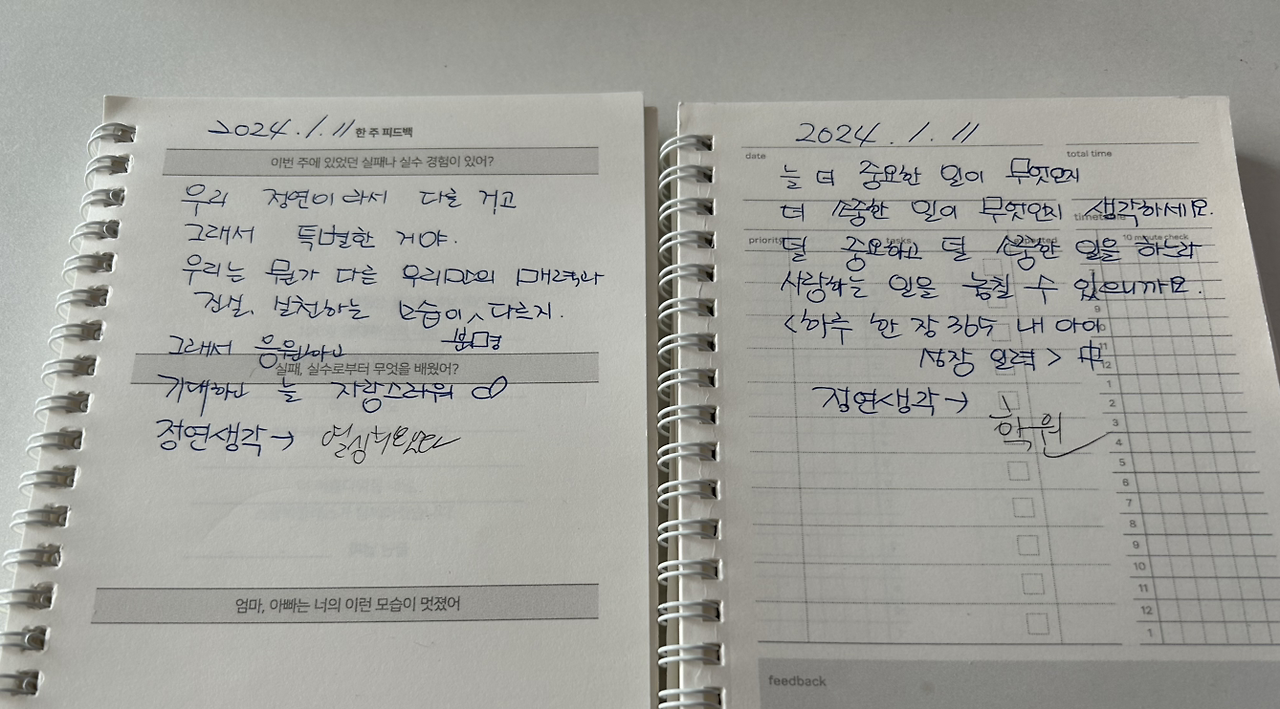 2024.1.11 한 주 피드백
이번 주에 있었던 실패나 실수 경험이 있어?
우리 정연이라서 다를 거고
그래서 특별한 거야.
우리는 뭔가 다른 우리만의 매력과
진실, 실천하는 모습이 다르지.
분명
그래서 응원하고
실패, 실수로부터 무엇을 배웠어?
기대하고 늘 자랑스러워
정연생각→
엄마, 아빠는 너의 이런 모습이 멋졌어
2024.1.11
date
total time
늘 더 중요한 일이 무엇인지
더 소중한 일이 무엇인지 생각하세요.
priority tasks 10 minute check
덜 중요하고 덜 소중한 일을 하느라
사랑하는 일을 놓칠 수 있으니까요.
<하루 한 장 365 내 아이
성장 일력> 中
정연생각→
학원
9
11
12
1
2
3
4
5
6
7
8
9
10
11
12
1
feedback